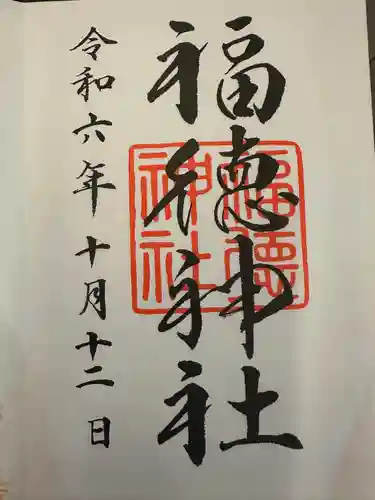 福徳神社
福徳
神社
令和六年十月十二日